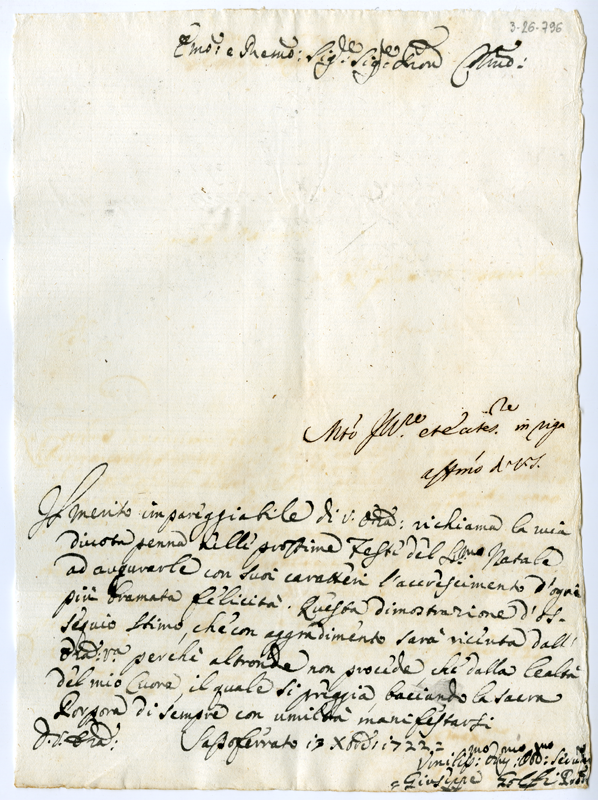 3-26-796
Emo: e Remo: Sigre: Sigre: Pron Cmo:
Mto Illre. etc
in riga
affmo
Il merito impareggiabile di v: Emā: richiama la mia
divota penna nelli prossime Feste del Ssmo Natale
ad augurarle con suoi caratteri l'accrescimento d'ogni
più bramata felicità. Questa dimostrazione d'Os-
sequio stimo, che con aggradimento sarà ricevuta dall'
Emā: Va. perchè altronde non procede, che dalla lealtà
del mio Cuore il quale si preggia, baciando la sacra
Porpora di sempre con umiltà manifestarsi
D. V. Emā: Sassoferrato 12 Xbre: 1722
Umilissmo: Devmo: Obbmo:
Giuseppe